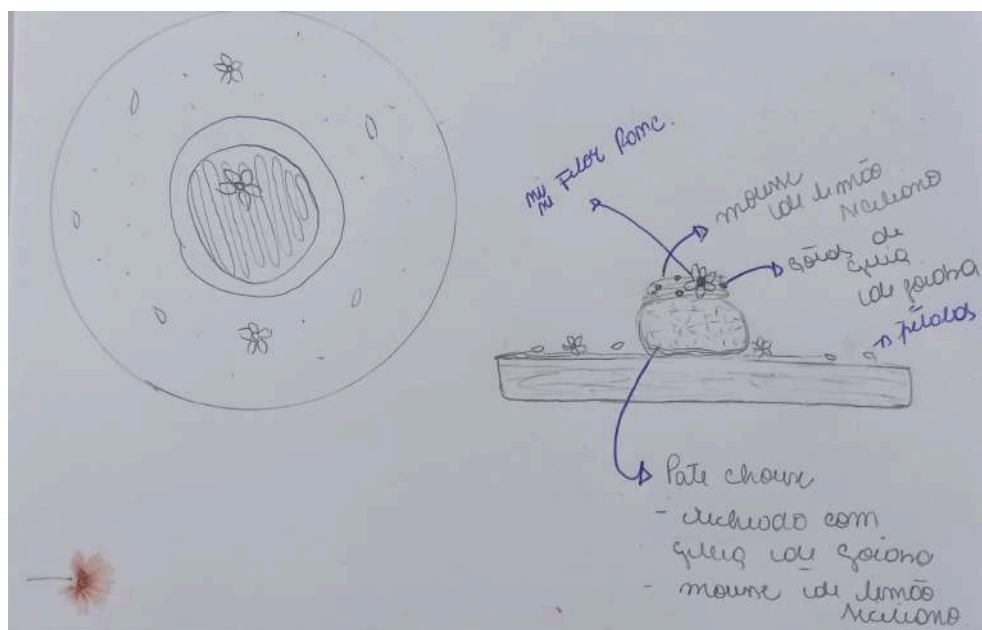 mini Flor Panc.
mousse
de limão
siciliano
gotas de
geleia
de goiaba
pétalas
Pate choux
- recheado com
geleia de goiaba
- mousse de limão
siciliano